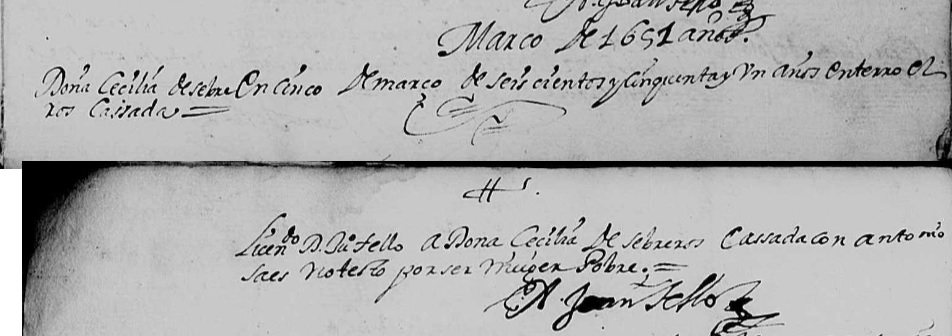 Marco de 1651 años.
Doña Cecilia de sebre En cinco de março de seis cientos y cinquenta y Un años enterro el
ros Cassada
Licendo D. Ju tello a Dona Cecilia de sebreros Cassada con antonio
Saes no testo por ser muger Pobre.
D. Juan Tello